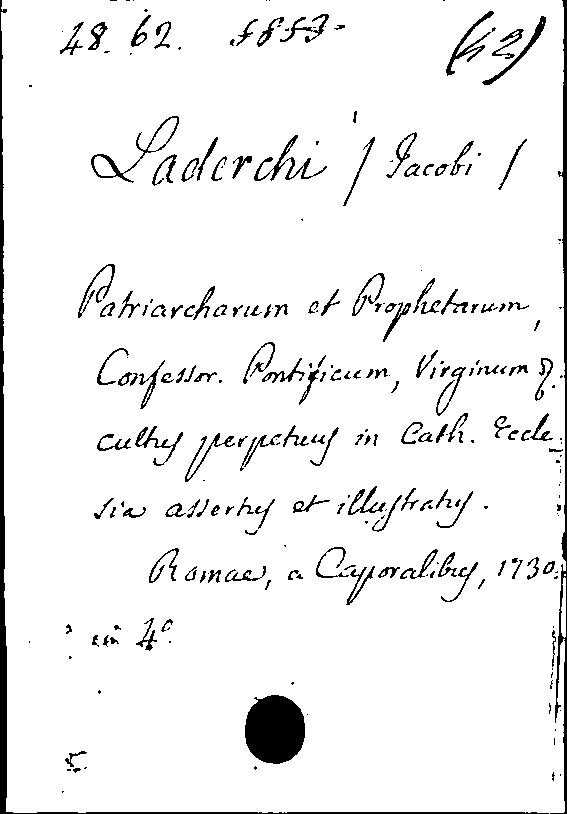 48. 62. 5853.
(42)
Laderchi / Jacobi /
Patriarcharum et Prophetarum,
Confessor. Pontificum, Virginum &.
cultus perpetuus in Cath. Eccle-
sia assertus et illustratus.
Romae, a Caporalibus, 1730.
in 4º.